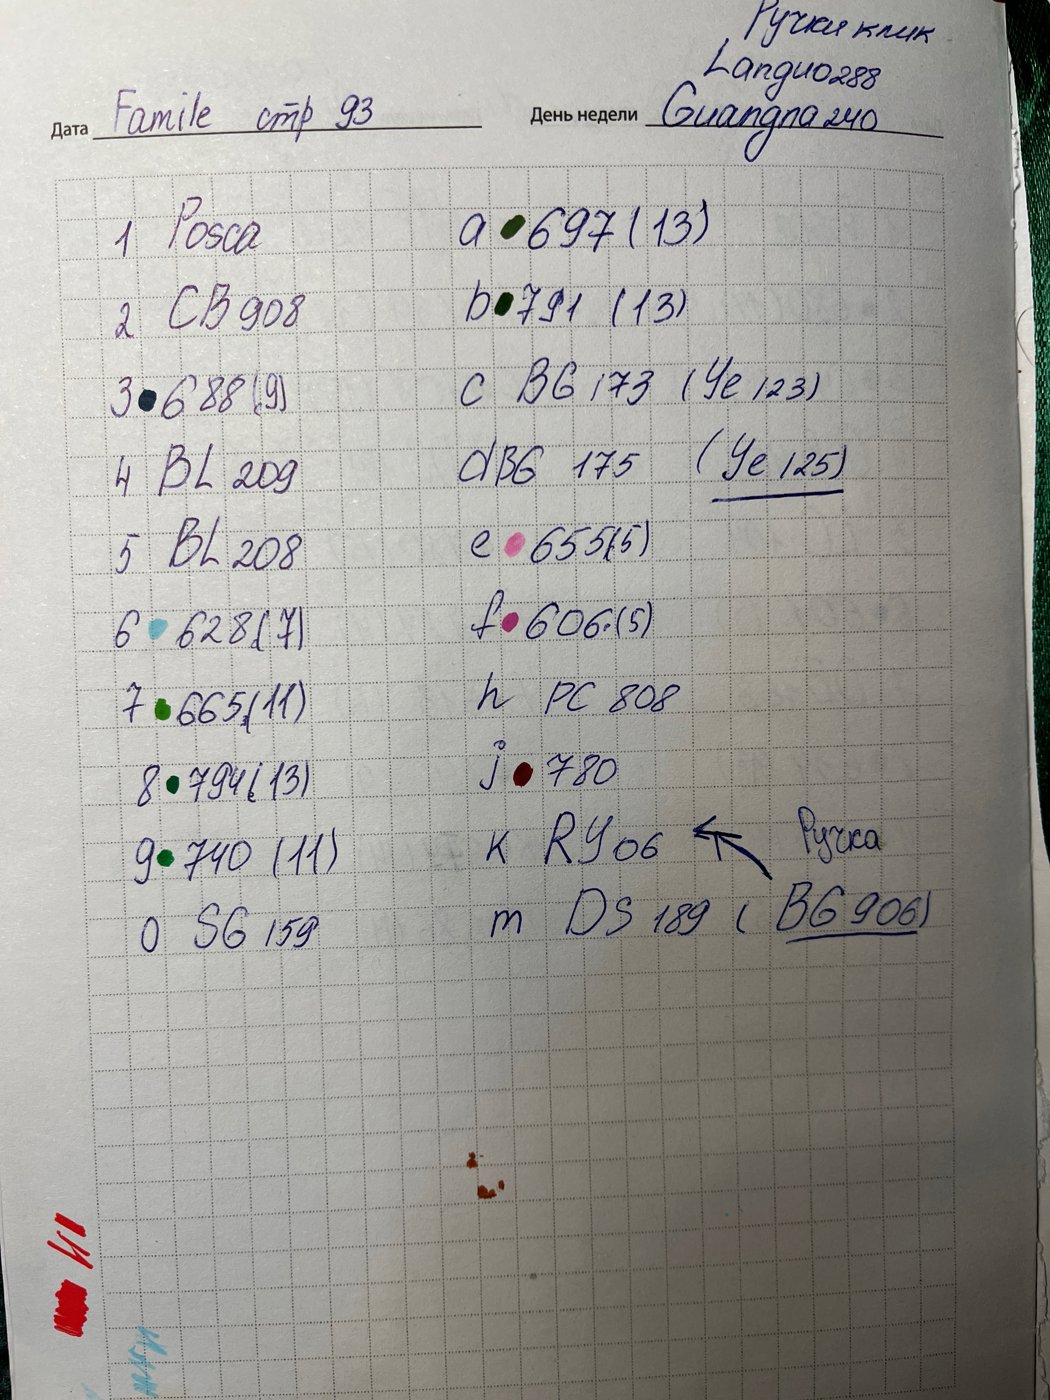 Ручки клик
Languo 288
Дата Famile стр 93 День недели Guangna 240
1 Posca
2 CB 908
3 688 (9)
4 BL 209
5 BL 208
6 628 (7)
7 665 (11)
8 794 (13)
9 740 (11)
0 SG 159
a 697 (13)
b 791 (13)
c BG 173 (Ye 123)
d BG 175 (Ye 125)
e 655 (5)
f 606 (5)
h PC 808
j 780
k RY 06 Ручка
m DS 189 (BG 906)